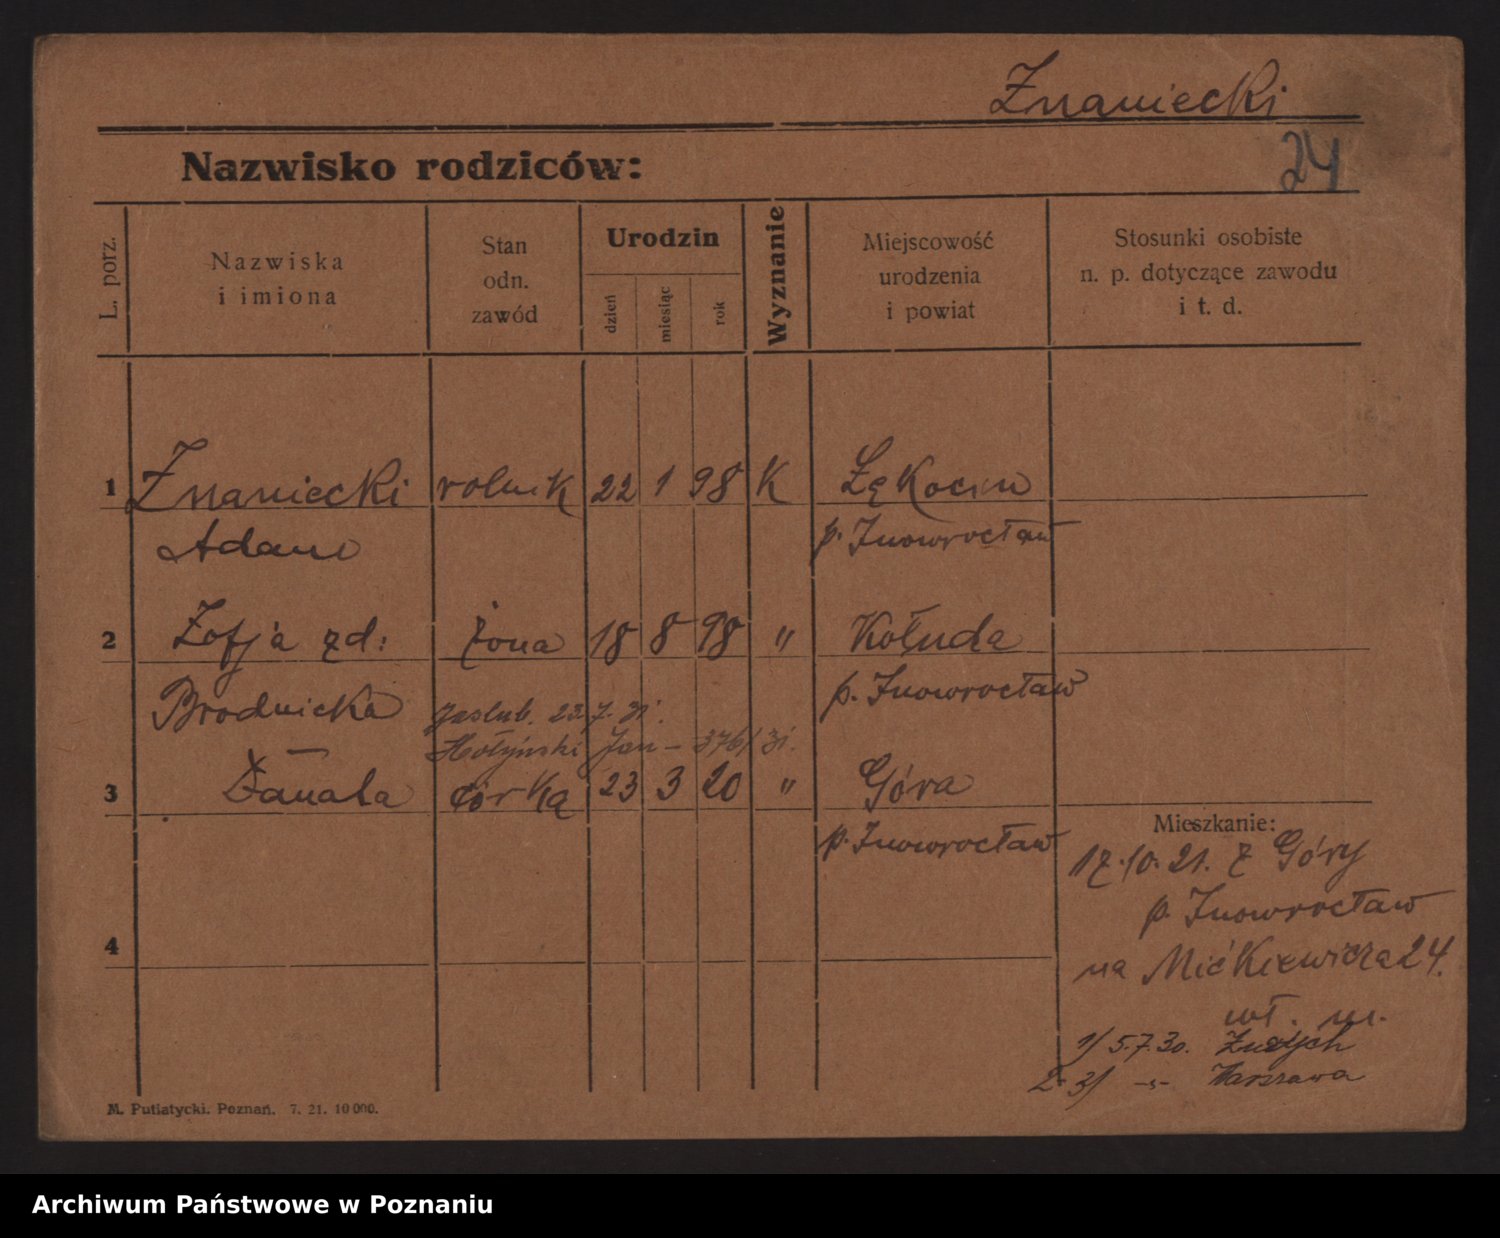 Znaniecki
24
Nazwisko rodziców:
L. porz.
Nazwiska
i imiona
Stan
odn.
zawód
Urodzin
dzień
miesiąc
rok
Wyznanie
Miejscowość
urodzenia
i powiat
Stosunki osobiste
n. p. dotyczące zawodu
i t. d.
1 Znaniecki rolnik 22 1 98 K
Adam p. Inowrocław
2 Zofja zd: żona 18 8 98 " Kołuda
Brodnicka p. Inowrocław
zaslub. 23.7.31.
Hołyński Jan – 376/31.
3 Danuta córka 23 3 20 " Góra
p. Inowrocław
Mieszkanie:
17.10.21. z Góry
p. Inowrocław
na Mickiewicza 24.
4
wł. m.
1/ 5.7.30.
2-3/ -„- Warszawa
M. Putiatycki. Poznań. 7. 21. 10 000.
Archiwum Państwowe w Poznaniu